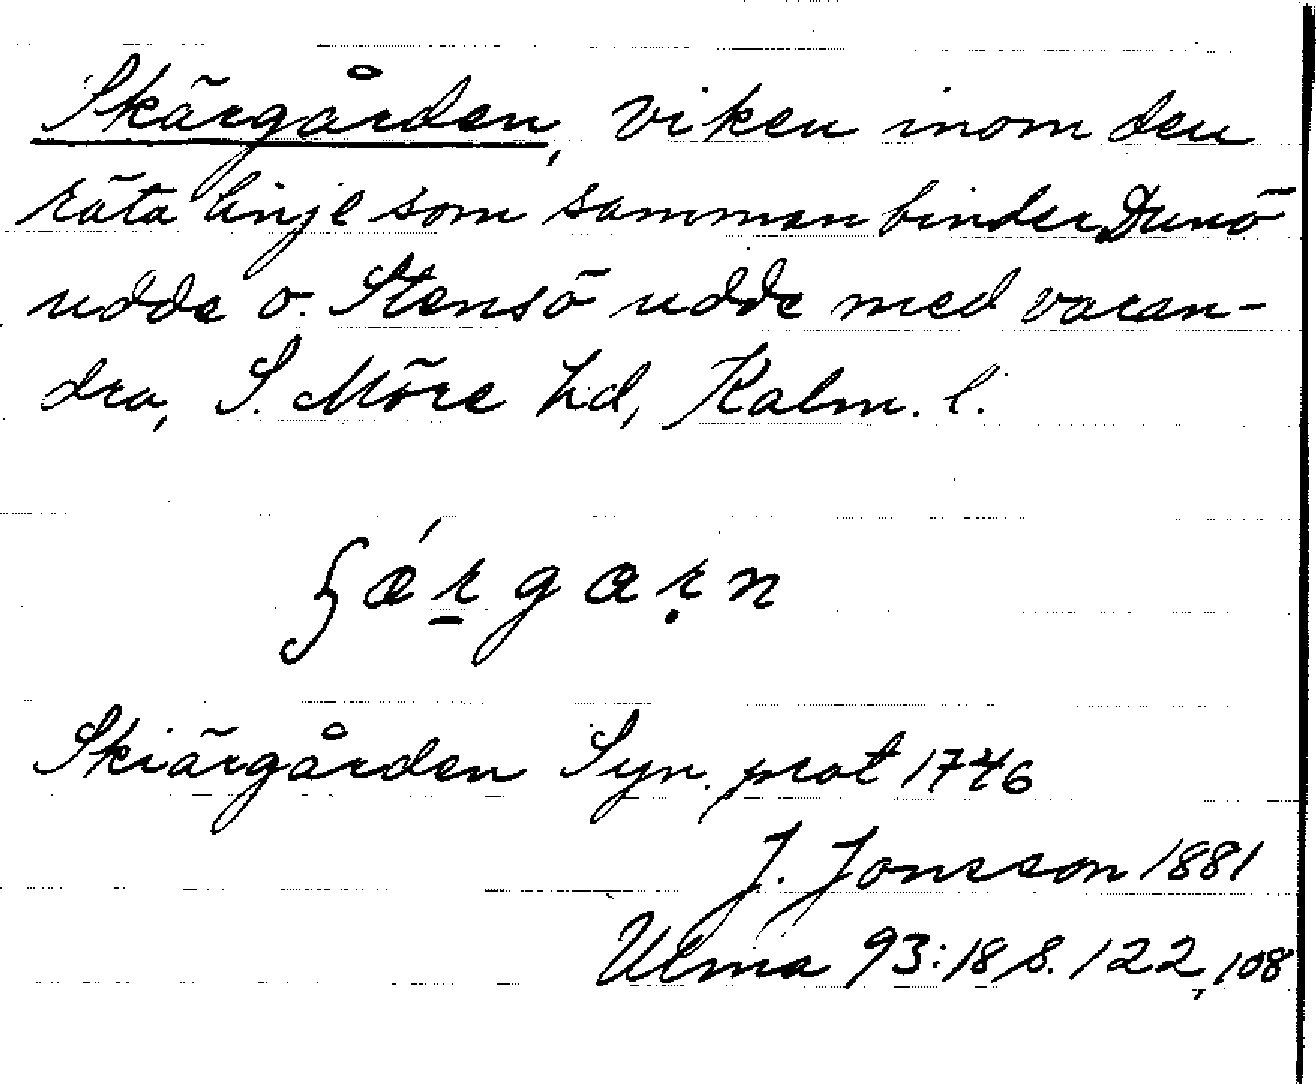 Skärgården, viken inom den
räta linje som sammanbinder Dunö
udde o. Stensö udde med varan-
dra, S. Möre hd, Kalm. l.
ʃǽr̠gaṛn
Skiärgården Syn. prot 1746
J. Jonsson 1881
Ulma 93:18 s. 122, 108